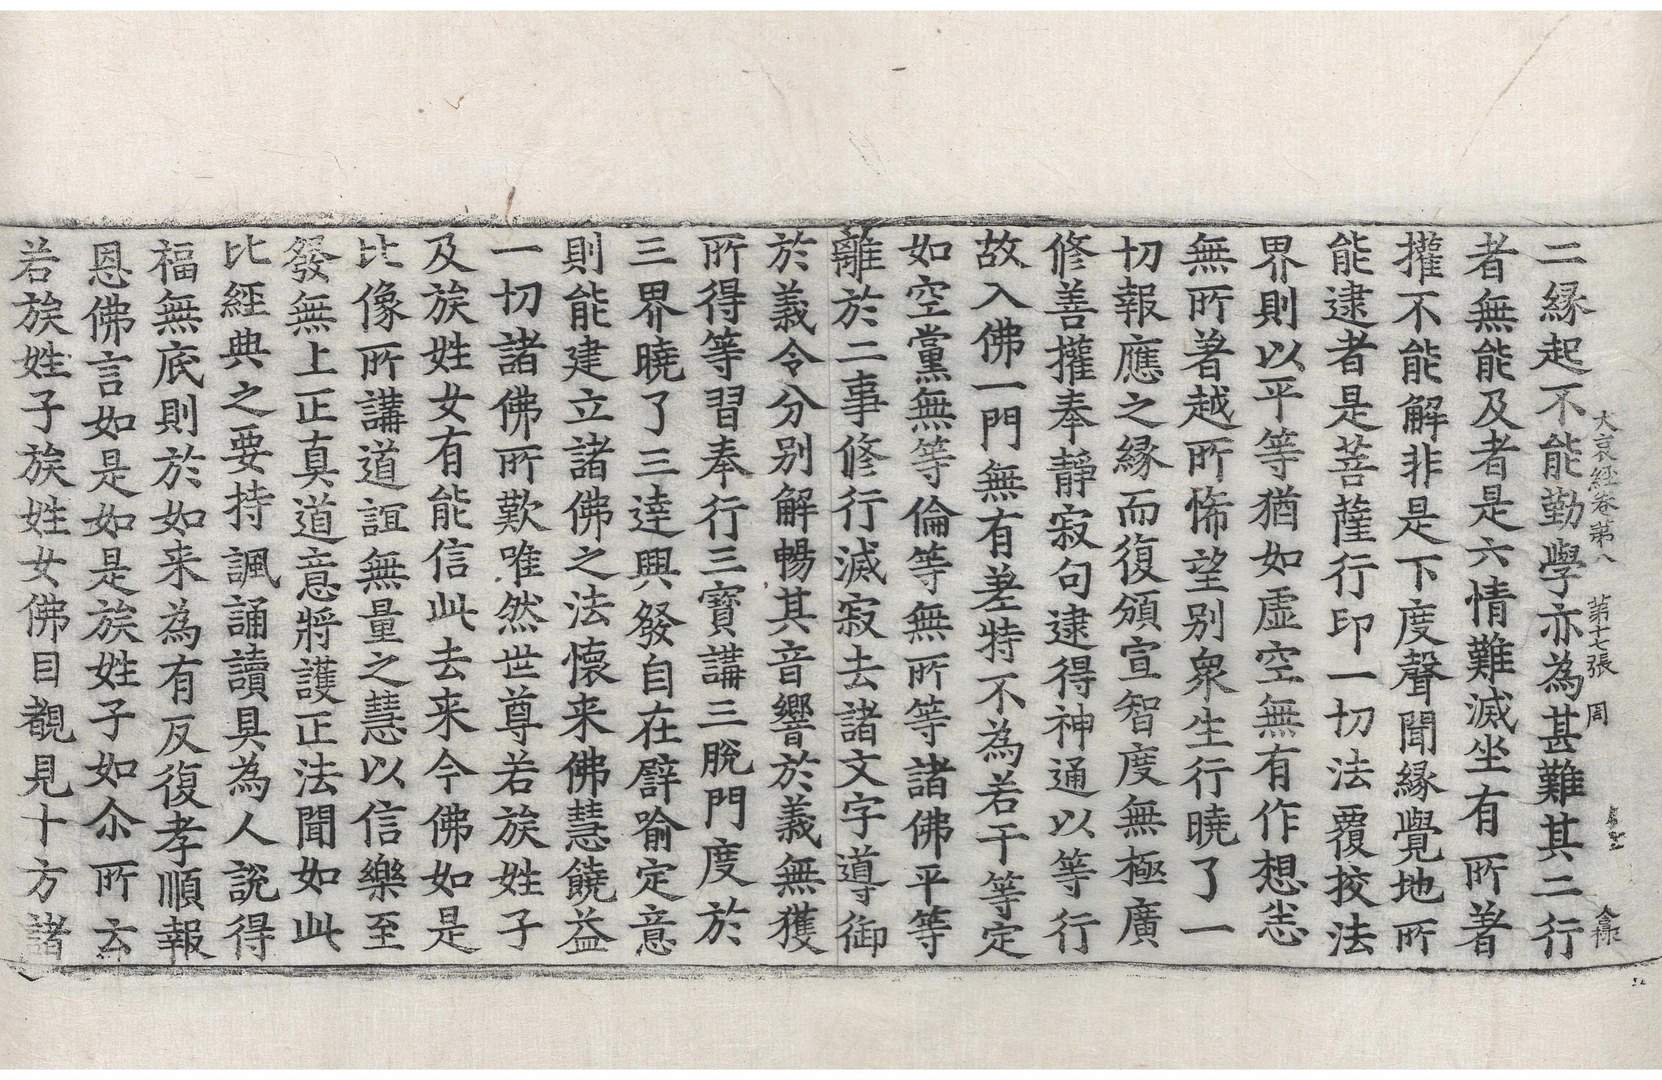 大哀經卷第八　第十七張　周
二縁起不能勤學亦為甚難其二行
者無能及者是六情難滅坐有所著
權不能解非是下度聲聞縁覺地所
能逮者是菩薩行印一切法覆挍法
界則以平等猶如虛空無有作想恙
無所著越所悕望别衆生行曉了一
切報應之縁而復頒宣智度無極廣
修善權奉靜寂句逮得神通以等行
故入佛一門無有差特不為若干等定
如空黨無等倫等無所等諸佛平等
離於二事修行滅寂去諸文字導御
於義令分别解暢其音響於義無獲
所得等習奉行三寶講三脫門度於
三界曉了三達興發自在辟喻定意
則能建立諸佛之法懷来佛慧饒益
一切諸佛所歎唯然世尊若族姓子
及族姓女有能信此去来今佛如是
比像所講道誼無量之慧以信樂至
發無上正真道意將護正法聞如此
比經典之要持諷誦讀具為人說得
福無底則於如来為有反復孝順報
恩佛言如是如是族姓子如尒所云
若族姓子族姓女佛目覩見十方諸